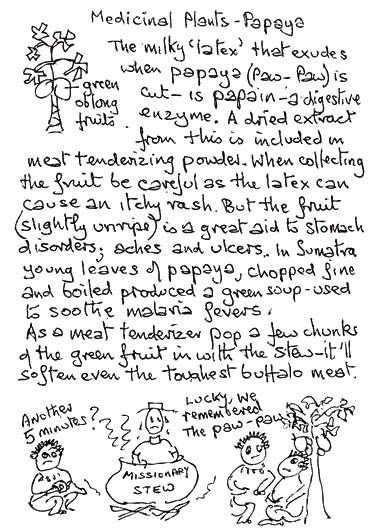 Medicinal Plants - Papaya
The milky 'latex' that exudes
when papaya (Paw-Paw) is
cut - is papain - a digestive
enzyme. A dried extract
from this is included in
green
oblong
fruits
meat tenderizing powder. When collecting
the fruit be careful as the latex can
cause an itchy rash. But the fruit
(slightly unripe) is a great aid to stomach
disorders; aches and ulcers.. In Sumatra
young leaves of papaya, chopped fine
and boiled produced a green soup - used
to soothe malaria fevers.
As a meat tenderizer pop a few chunks
of the green fruit in with the stew - it'll
soften even the toughest buffalo meat.
Another
5 minutes?
Lucky, we
remembered
The paw-paw
MISSIONARY
STEW